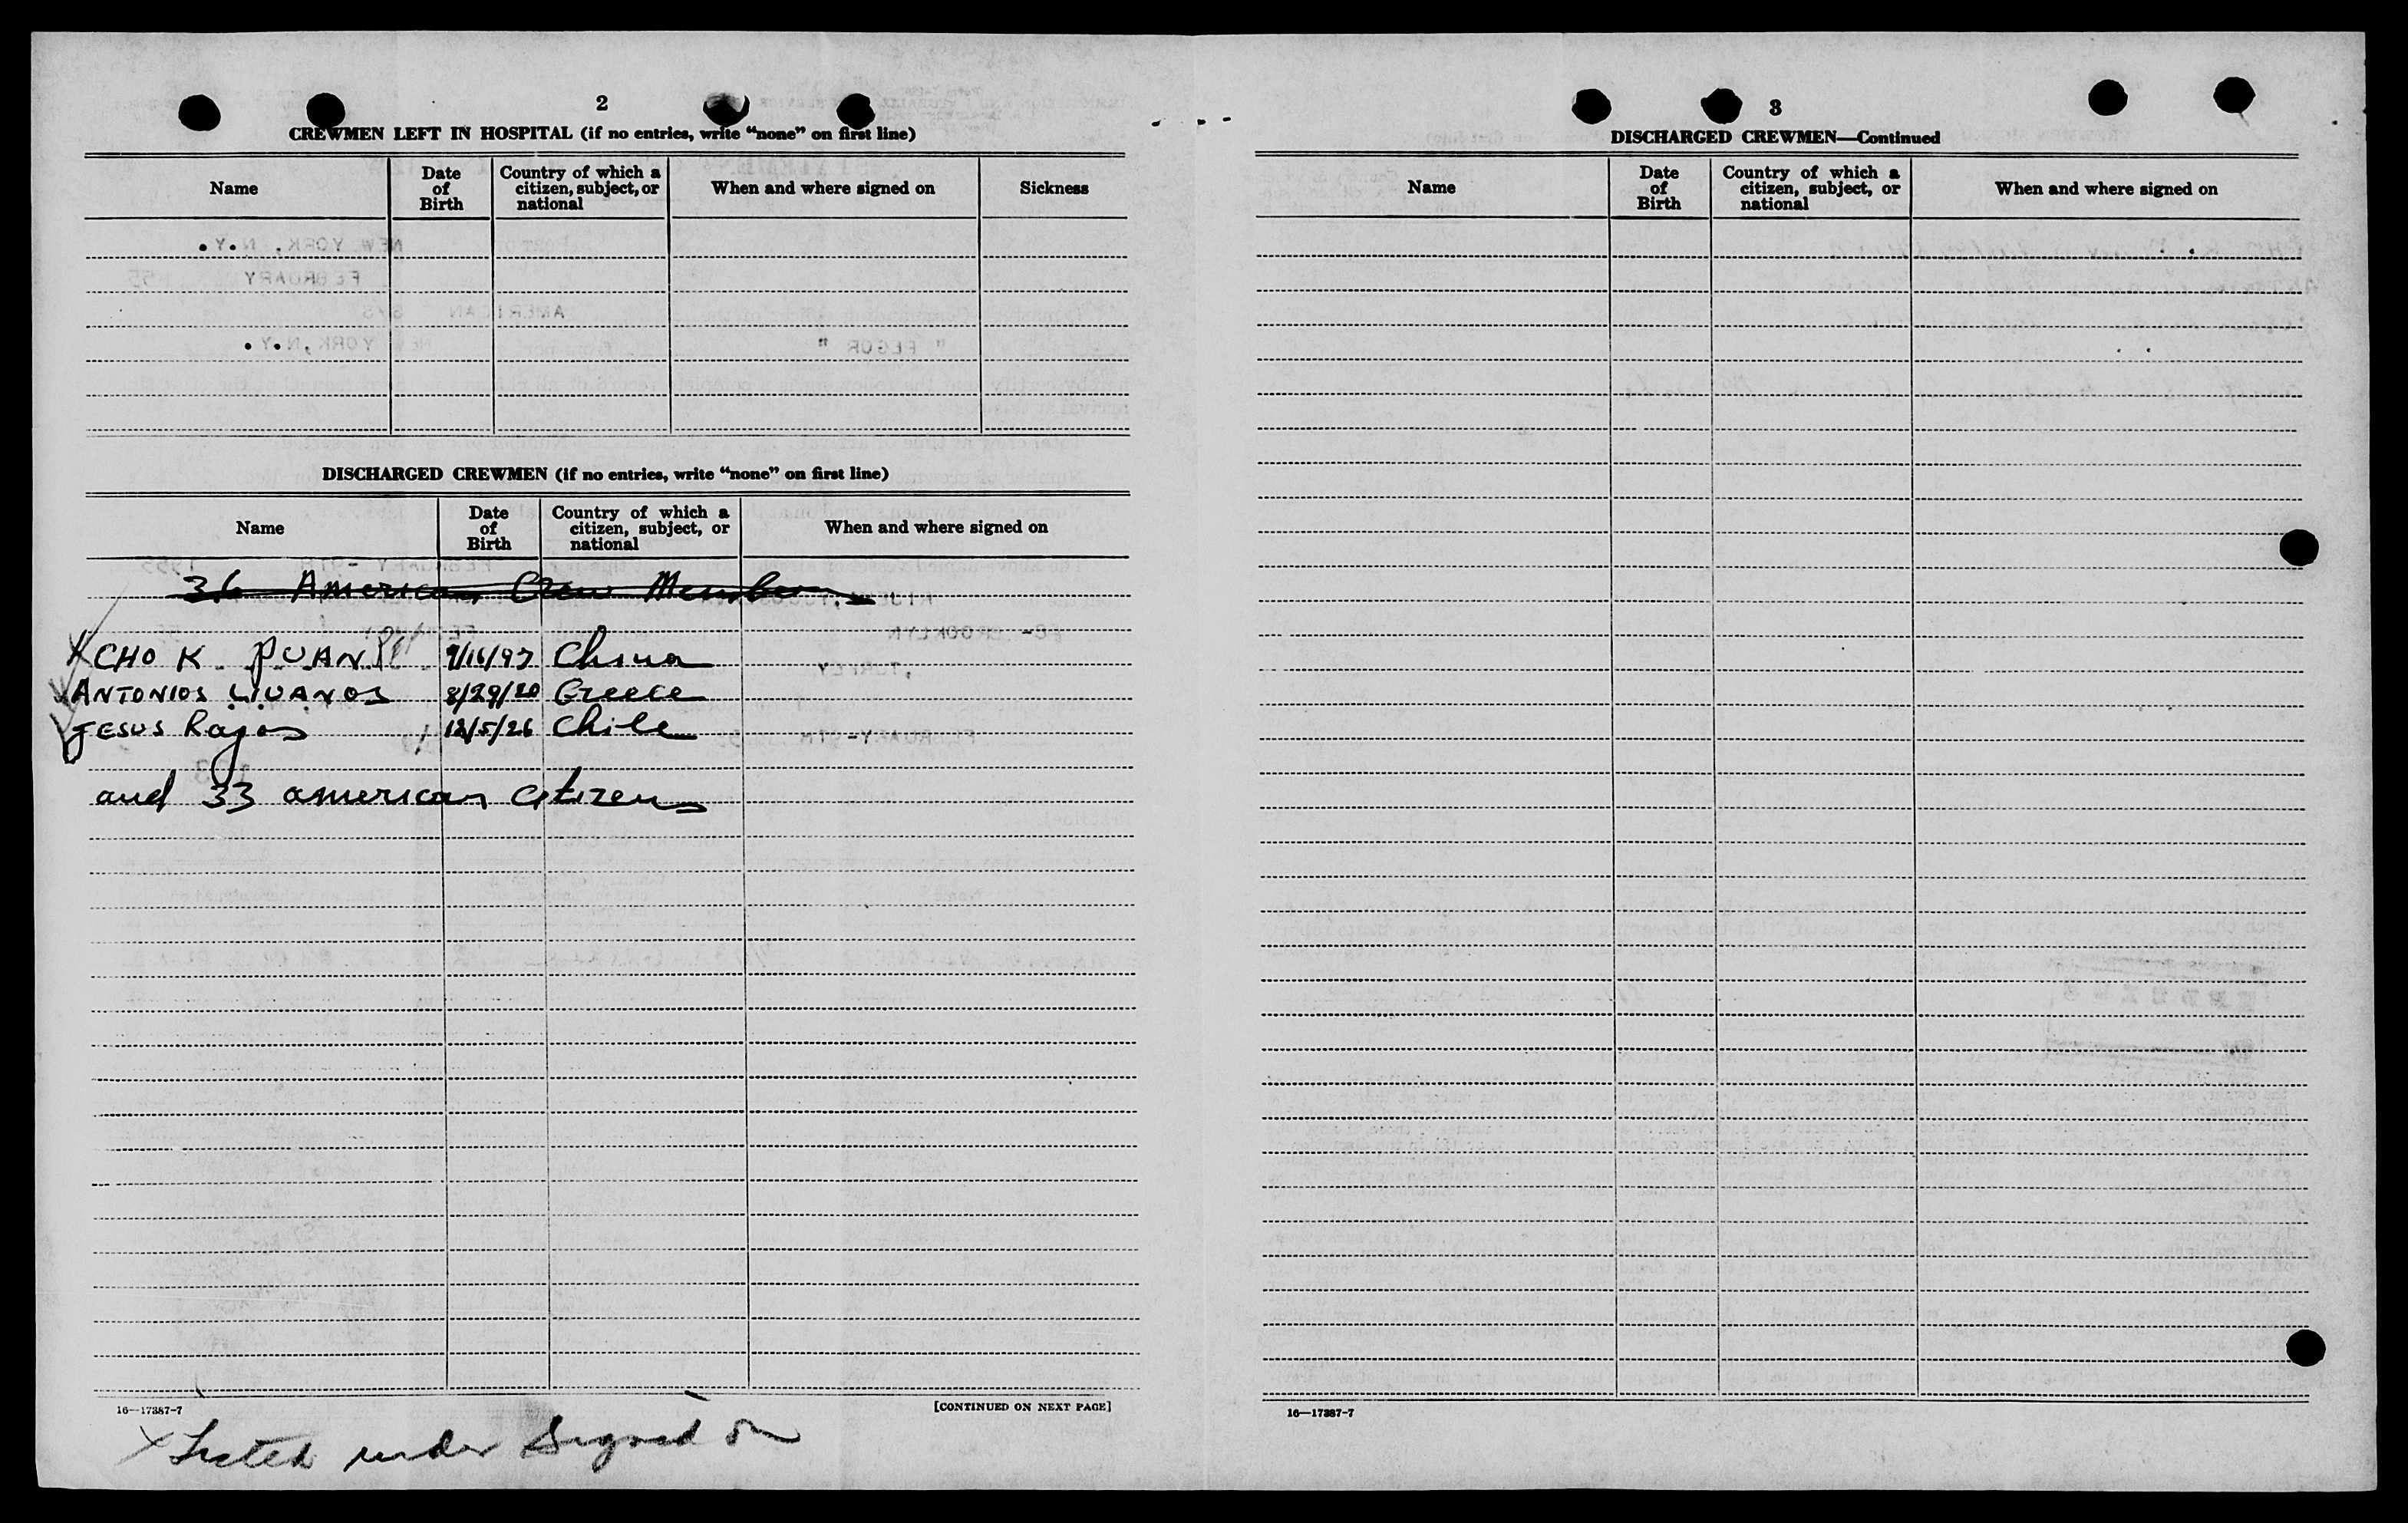 2
CREWMEN LEFT IN HOSPITAL (if no entries, write "none" on first line)
Name
Date of Birth
Country of which a citizen, subject, or national
When and where signed on
Sickness
DISCHARGED CREWMEN (if no entries, write "none" on first line)
Name
Date of Birth
Country of which a citizen, subject, or national
When and where signed on
36 American Crew Members
X CHO K. PUAN 9/16/97 China
ANTONIOS LIVANOS 8/29/20 Greece
JESUS Rajos 12/5/26 Chile
and 33 american citizens
16—17387-7
[CONTINUED ON NEXT PAGE]
X Listed under Signed on
3
DISCHARGED CREWMEN—Continued
Name
Date of Birth
Country of which a citizen, subject, or national
When and where signed on
16—17387-7